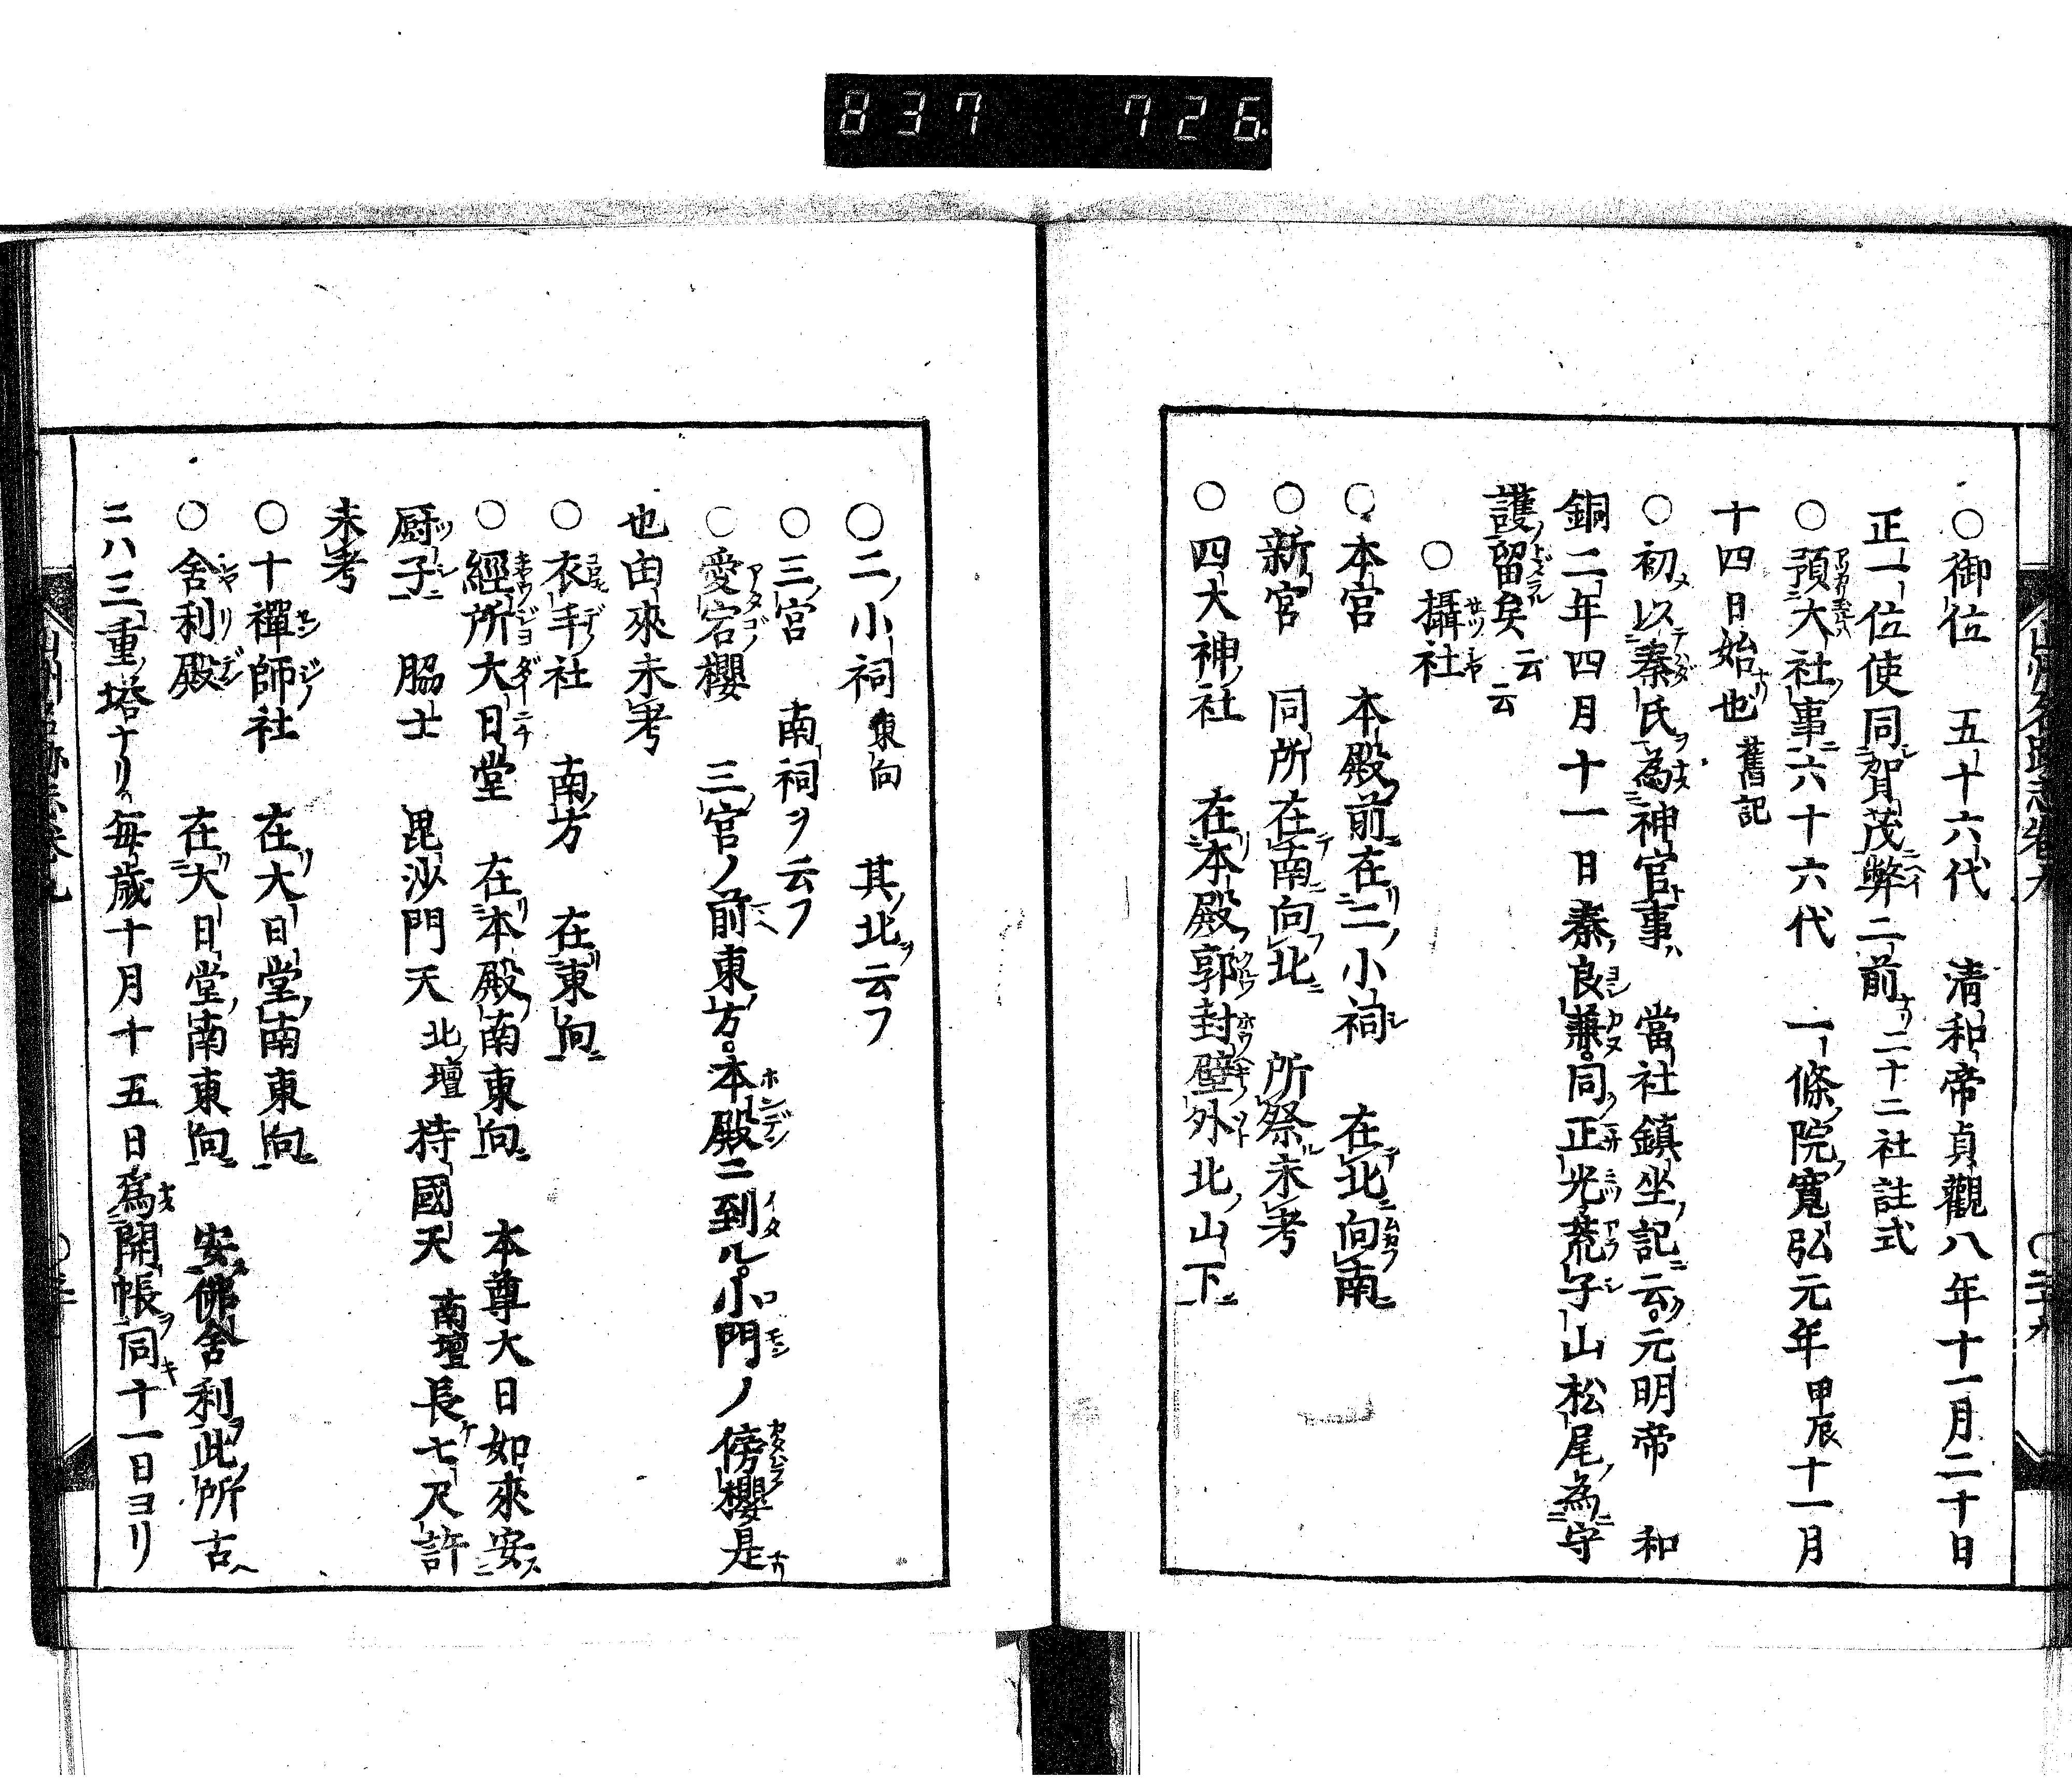 837 726.
○御位 五十六代 清和帝貞觀八年十一月二十日
正一位使同賀茂弊二前ナリ二十二社註式
○預大社事六十六代 一條院寛弘元年甲辰十一月
十四日始ナリ也 舊記
○初メ以テ秦氏ヲ為ス神官事ハ 當社鎮坐ノ記ニ云ク元明帝 和
銅二年四月十一日秦ノ良兼同ク正光荒子山松尾ノ為ニ守
護ノ留ル矣云云
○攝社
○本宮 本殿ノ前ニ在リ二ノ小祠シ 在テ北ニ向フ南ニ
○新宮 同所在テ南ニ向フ北ニ 所祭ル未考
○四大神ノ社 在リ本殿ノ郭封壁ノ外北ノ山下ニ
○二ノ小祠東向 其ノ北ヲ云フ
○三ノ宮 南祠ヲ云フ
○愛宕ノ櫻 三ノ宮ノ前ヘ東ノ方。本殿ニ到ル。小門ノ傍櫻是ナリ
也由來未考
○衣手ノ社 南ノ方 在リ東向ニ
○經所大日堂 在リ本殿ノ南東向ニ 本尊大日如來安ス
厨子ニ 脇士 毘沙門天北ノ壇 持國天南壇 長ケ七尺許
未考
○十禪師ノ社 在リ大日堂ノ南東向ニ
○舍利殿 在リ大日堂ノ南東向ニ 安ス佛舍利ヲ此ノ所古ヘ
ニハ三重ノ塔ナリ。毎歳十月十五日為ス開帳ヲ同キ十一日ヨリ